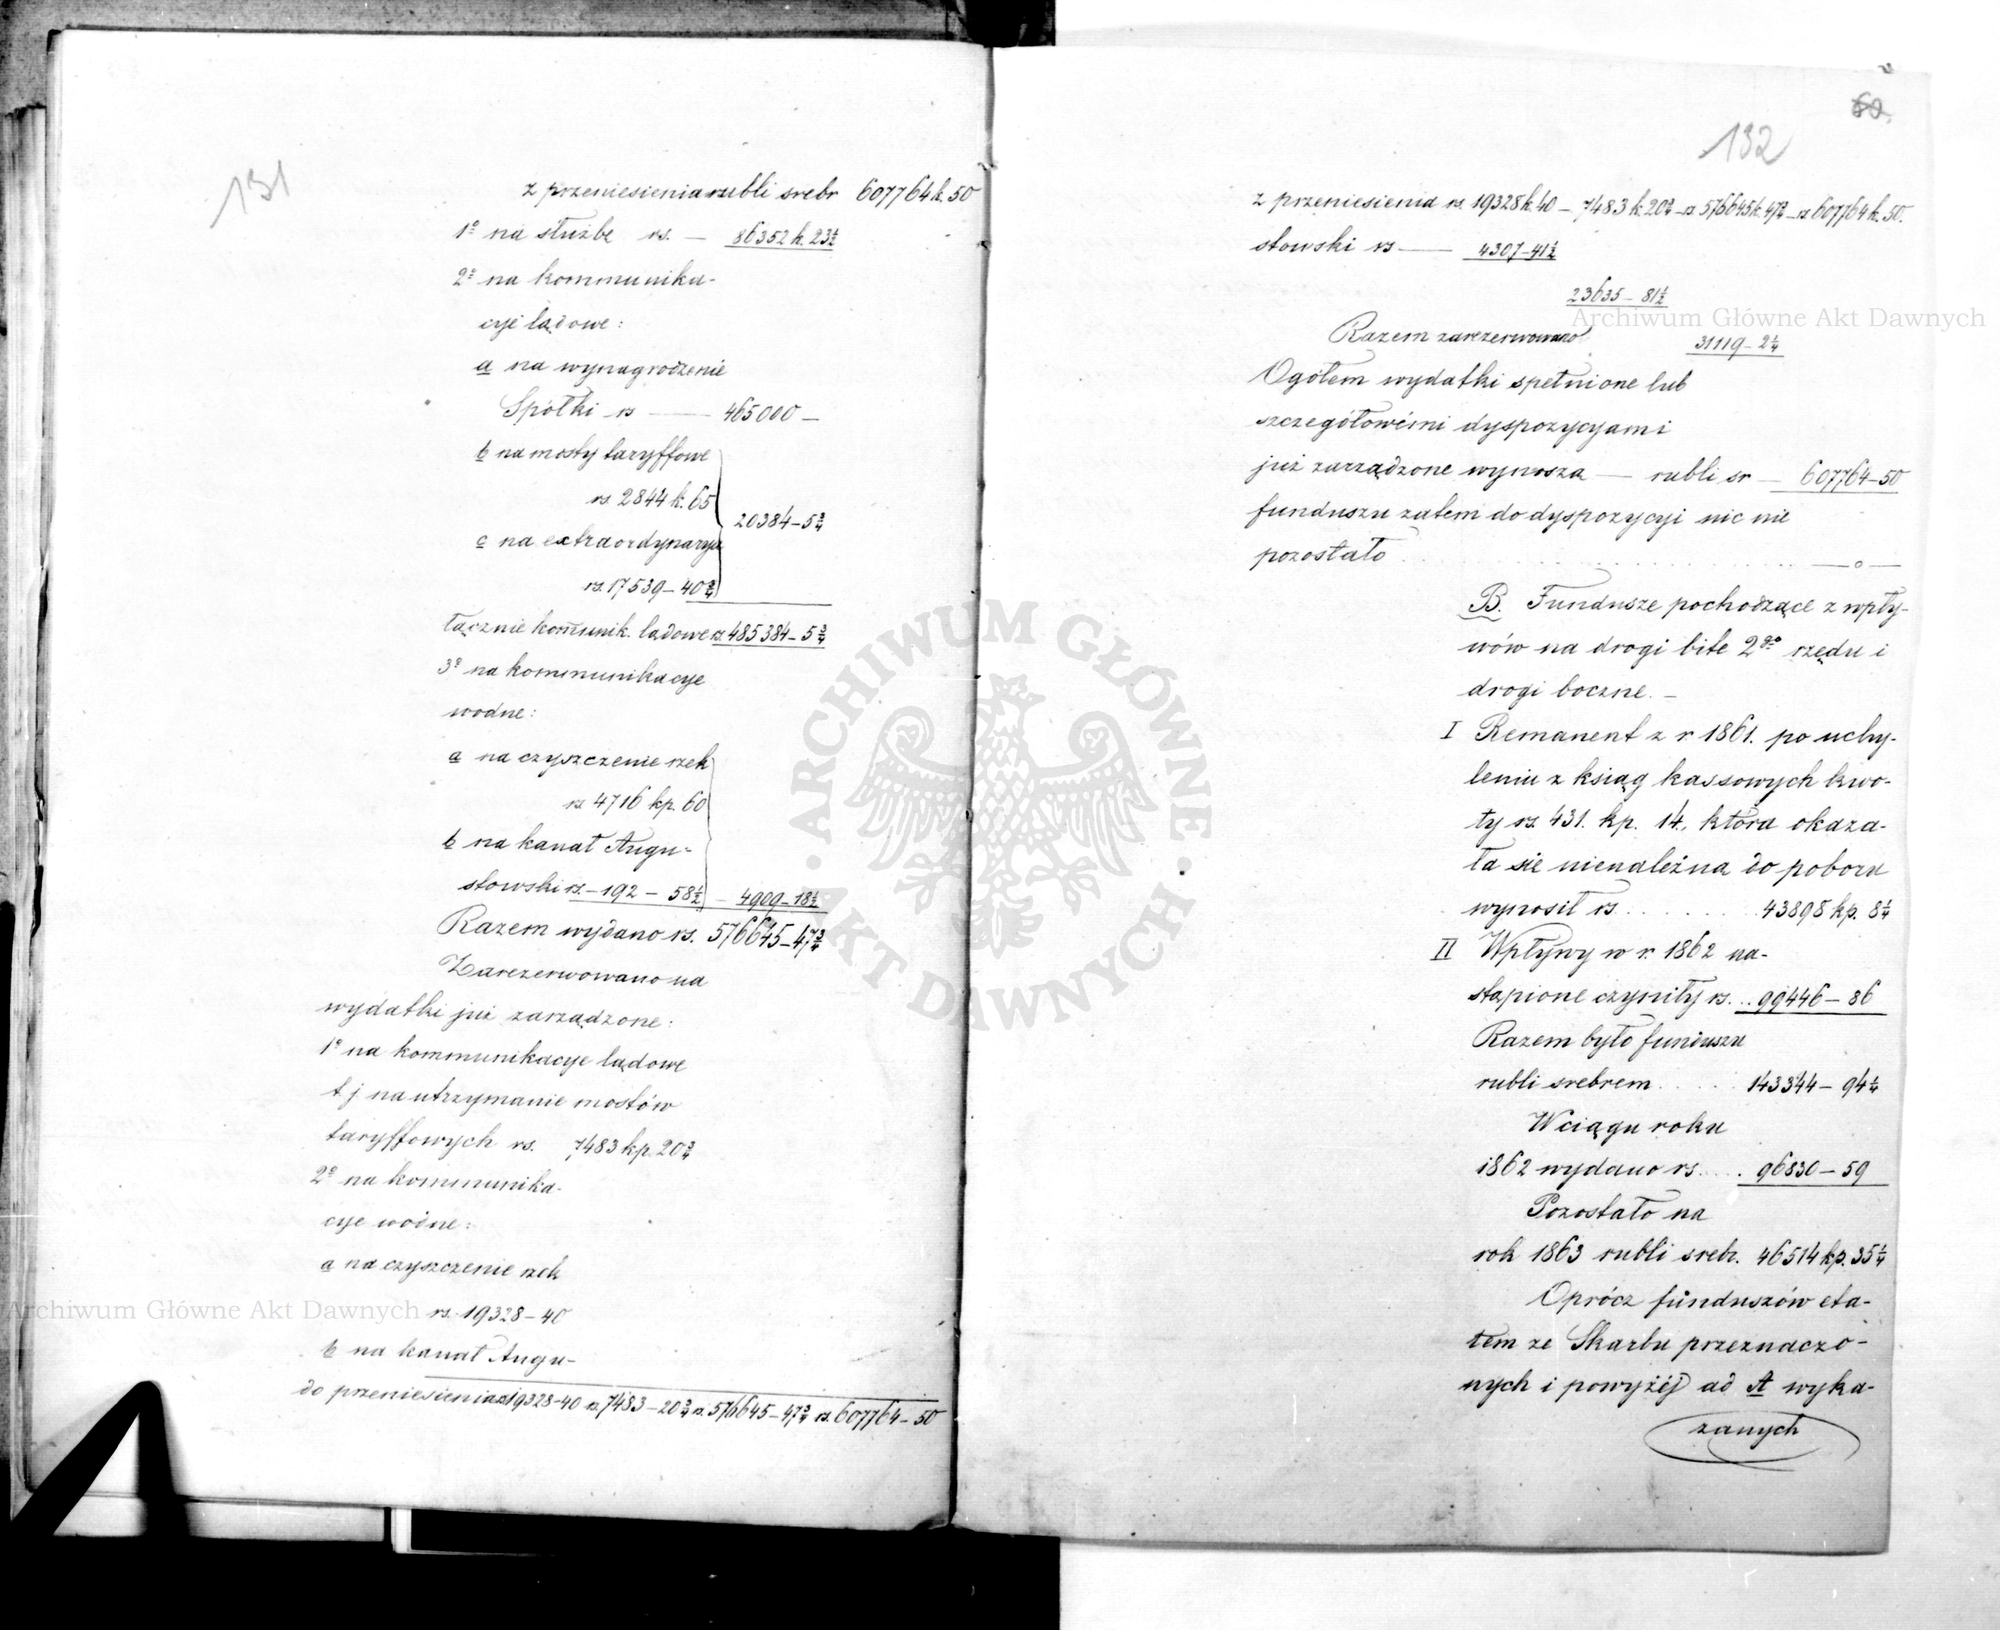 131
z przeniesienia rubli srebr 607764 k. 50
1º na służbę rs. — 86352 k. 23½
2º na kommunika-
cye lądowe:
a na wynagrodzenie
Spółki rs — 465000 —
b na mosty taryffowe
rs. 2844 k. 65
20384 – 5¾
c na extraordynarya
rs. 17539 – 40¾
łącznie komunik. lądowe rs. 485384 – 5¾
3º na kommunikacye
wodne:
a na czyszczenie rzek
rs. 4716 kp. 60
b na kanał Augu-
stowski rs. – 192 – 58½ – 4909 – 18½
Razem wydano rs. 576645 – 47¾
Zarezerwowano na
wydatki już zarządzone:
1º na kommunikacye lądowe
t j na utrzymanie mostów
taryffowych rs. 7483 kp. 20¾
2º na kommunika-
cye wodne:
a na czyszczenie rzek
rs. 19328 – 40
b na kanał Augu-
do przeniesienia rs 19328 – 40 rs 7483 – 20¾ rs 576645 – 47¾ rs. 607764 – 50
60
132
z przeniesienia rs. 19328 k. 40 – 7483 k. 20¾ – rs 576645 k. 47¾ – rs 607764 k. 50.
stowski rs — 4307 – 41½
23635 – 81½
Razem zarezerwowano 31119 – 2¼
Ogółem wydatki spełnione lub
szczegółowémi dyspozycyami
już zarządzone wynoszą — rubli sr — 607764 – 50
funduszu zatem do dyspozycyi nic nie
pozostało . . . . . . — o —
B. Fundusze pochodzące z wpły-
wów na drogi bite 2go rzędu i
drogi boczne. –
I Remanent z r 1861. po uchy-
leniu z ksiąg kassowych kwo-
ty rs. 431. kp. 14., która okaza-
ła się nienależną do poboru
wynosił rs . . . . . . 43898 kp. 8¼
II Wpływy w r. 1862 na-
stąpione czyniły rs. . . 99446 – 86
Razem było funduszu
rubli srebrem . . . . . 143344 – 94¼
W ciągu roku
1862 wydano rs. . . . 96830 – 59
Pozostało na
rok 1863 rubli srebr. 46514 kp. 35¼
Oprócz funduszów eta-
tem ze Skarbu przeznaczo-
nych i powyżéj ad A wyka-
zanych
Archiwum Główne Akt Dawnych
Archiwum Główne Akt Dawnych
ARCHIWUM GŁÓWNE · AKT DAWNYCH ·